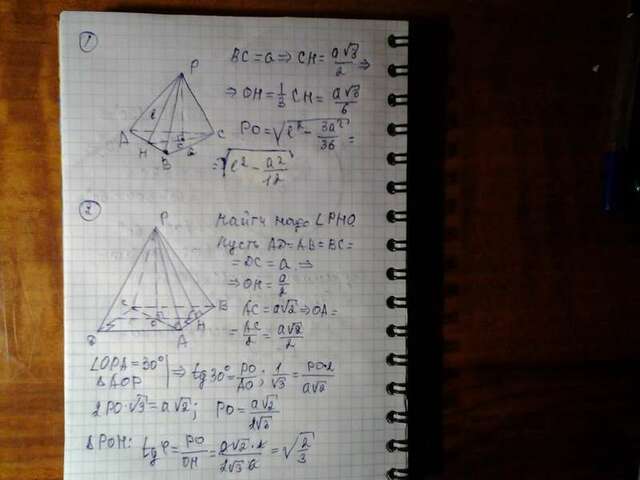 1
BC = a ⇒ CH = a√3/2 ⇒
⇒ OH = 1/3 CH = a√3/6
PO = √(l² − 3a²/36) =
= √(l² − a²/12)
P
l
A
H
B
a
C
O
2
Найти надо ∠PHO
Пусть AD = AB = BC =
= DC = a ⇒
⇒ OH = a/2
AC = a√2 ⇒ OA =
= AC/2 = a√2/2
P
C
B
O
H
A
∠OPA = 30°
ΔAOP | ⇒ tg 30° = PO/AO; 1/√3 = PO·2/a√2
2PO·√3 = a√2; PO = a√2/2√3
ΔPOH: tg φ = PO/OH = a√2·2/2√3 a = √(2/3)